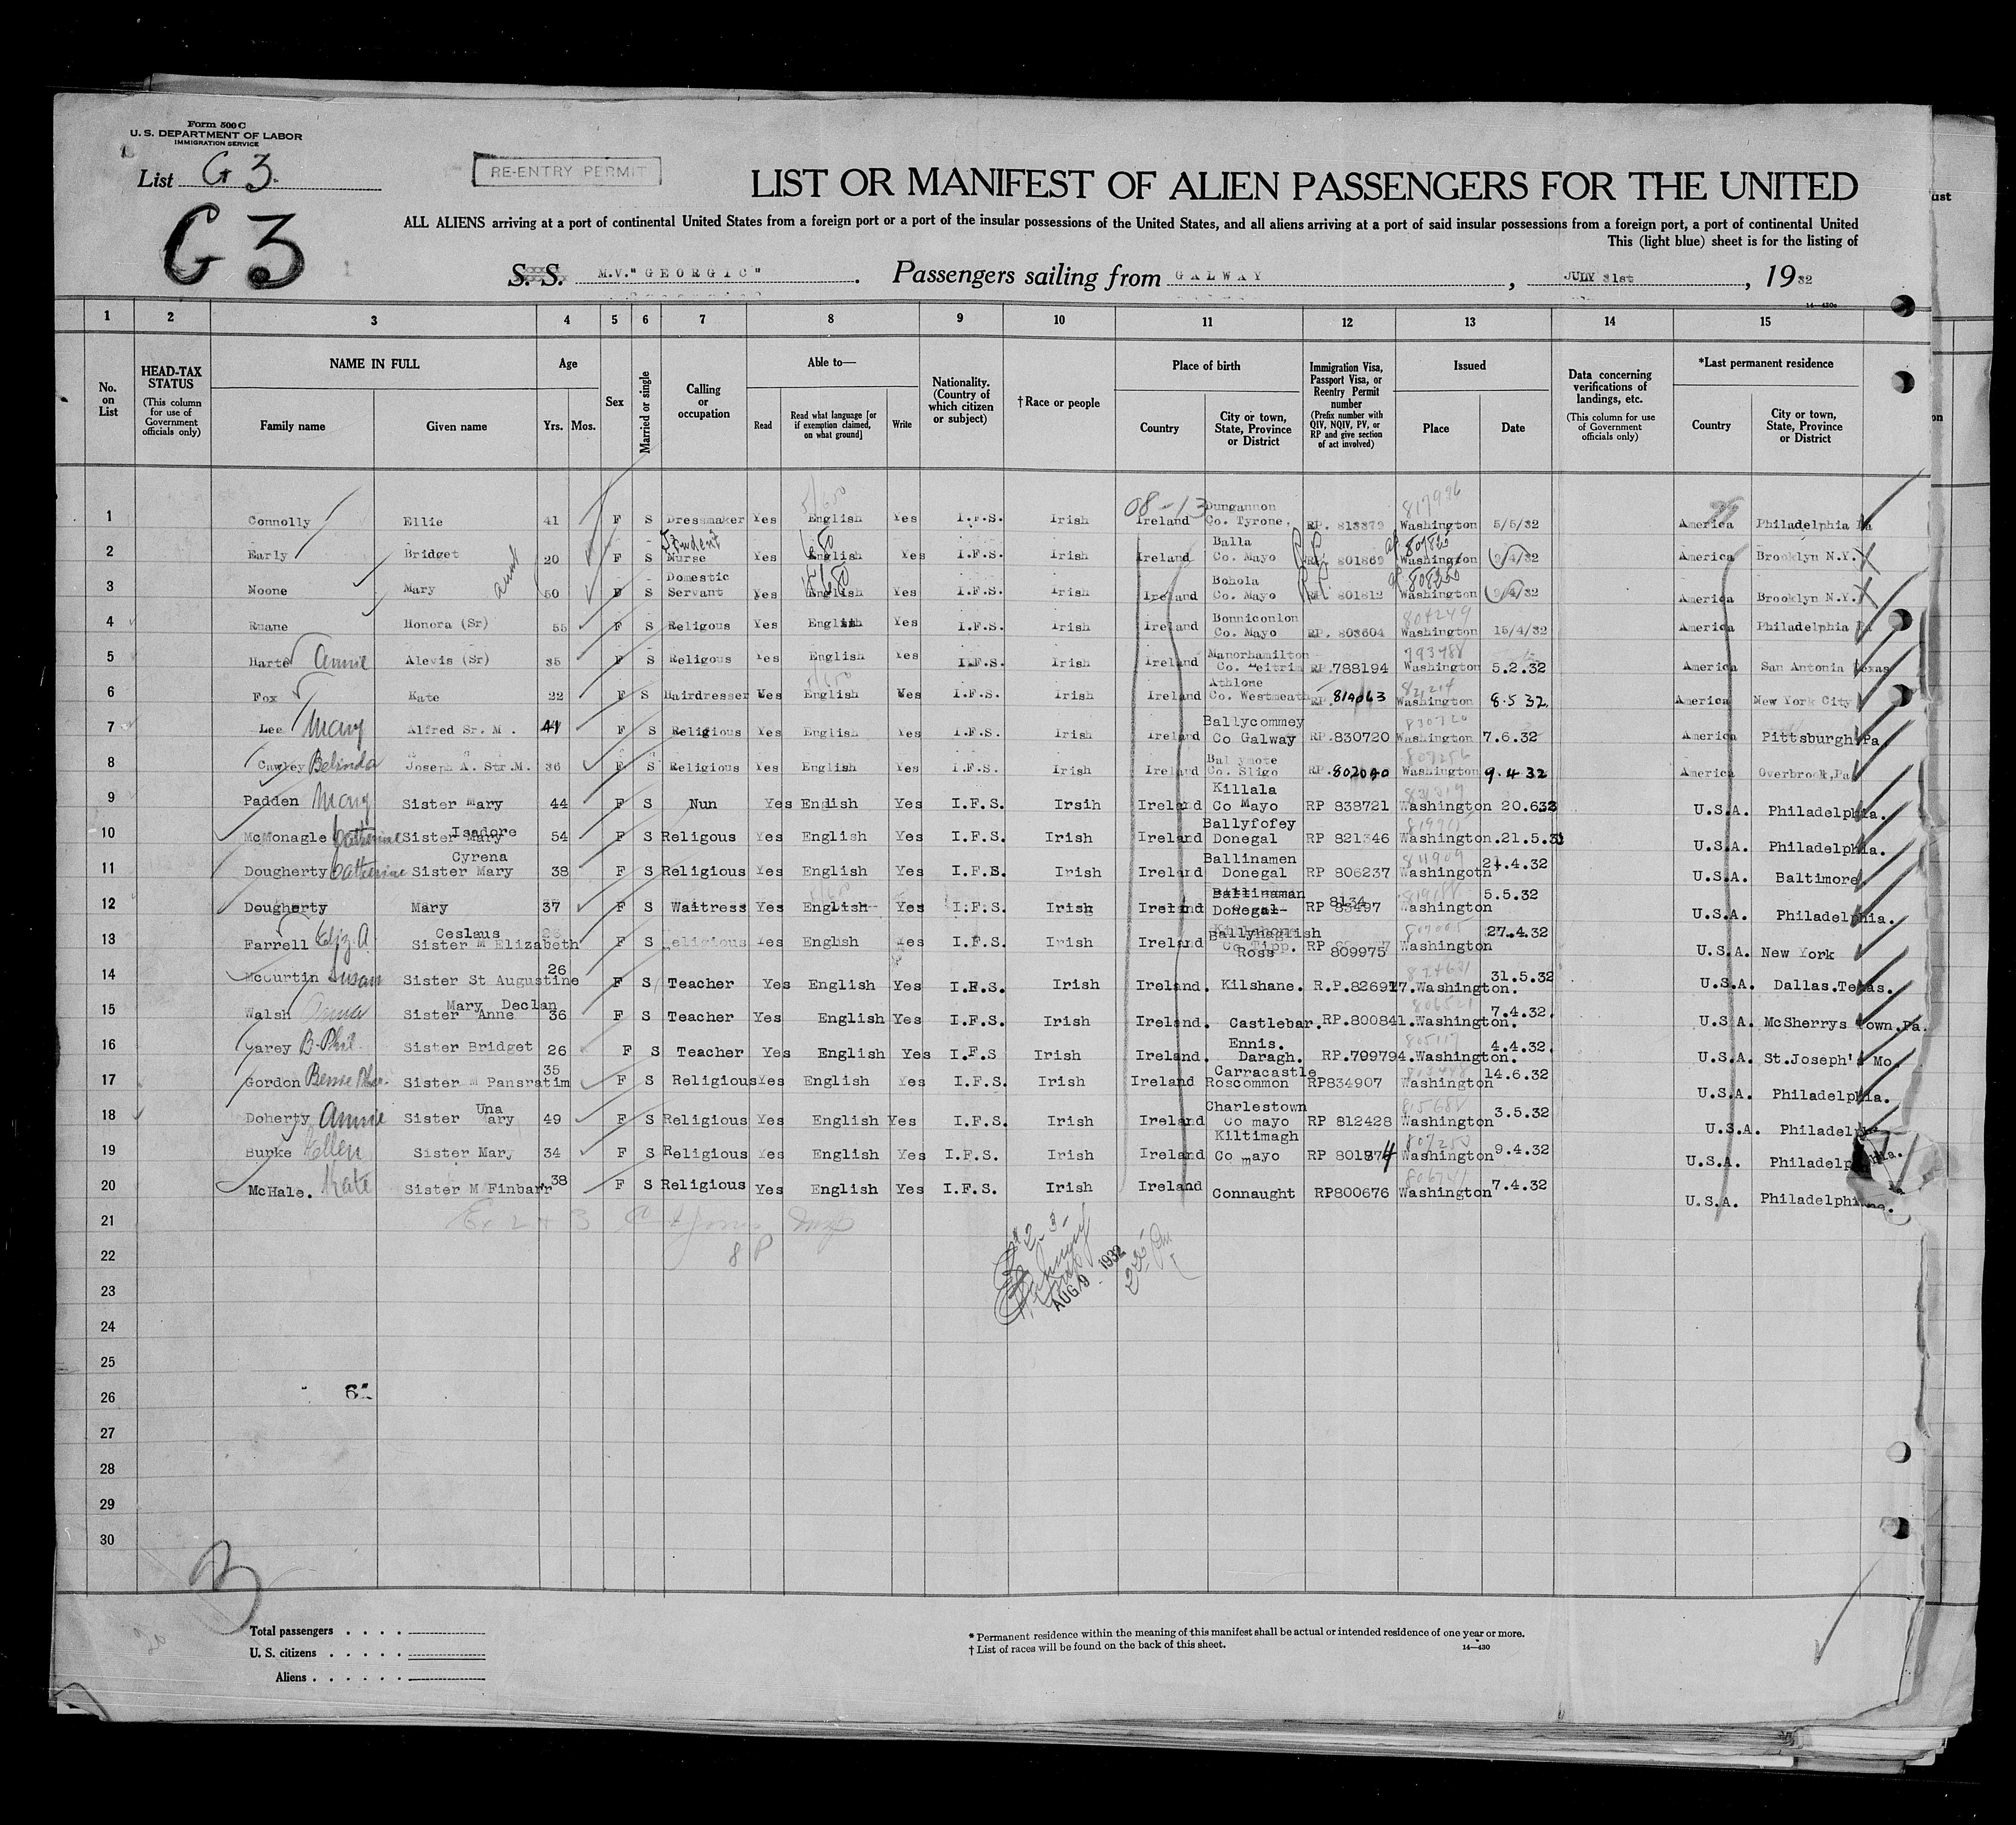 Form 500 C
U. S. DEPARTMENT OF LABOR
IMMIGRATION SERVICE
List G 3.
RE-ENTRY PERMIT
LIST OR MANIFEST OF ALIEN PASSENGERS FOR THE UNITED
G 3
ALL ALIENS arriving at a port of continental United States from a foreign port or a port of the insular possessions of the United States, and all aliens arriving at a port of said insular possessions from a foreign port, a port of continental United
This (light blue) sheet is for the listing of
S. S. M.V. "GEORGIC". Passengers sailing from GALWAY, JULY 31st, 1932
14—430c
1 2 3 4 5 6 7 8 9 10 11 12 13 14 15
No. on List
HEAD-TAX STATUS (This column for use of Government officials only)
NAME IN FULL Family name Given name
Age Yrs. Mos.
Sex
Married or single
Calling or occupation
Able to— Read Read what language [or if exemption claimed, on what ground] Write
Nationality. (Country of which citizen or subject)
†Race or people
Place of birth Country City or town, State, Province or District
Immigration Visa, Passport Visa, or Reentry Permit number (Prefix number with QIV, NQIV, PV, or RP and give section of act involved)
Issued Place Date
Data concerning verifications of landings, etc. (This column for use of Government officials only)
*Last permanent residence Country City or town, State, Province or District
08-13 817996
1 Connolly Ellie 41 F S Dressmaker Yes English Yes I.F.S. Irish Ireland Dungannon Co. Tyrone. RP. 813379 Washington 5/5/32 America Philadelphia Pa
2 Early Bridget 20 F S Student Nurse Yes English Yes I.F.S. Irish Ireland Balla Co. Mayo RP. 801869 Washington 9/4/32 America Brooklyn N.Y.
3 Noone Mary aunt 50 F S Domestic Servant Yes English Yes I.F.S. Irish Ireland Bohola Co. Mayo RP. 801812 Washington 9/4/32 America Brooklyn N.Y.
4 Ruane Honora (Sr) 55 F S Religous Yes English Yes I.F.S. Irish Ireland Bonniconlon Co. Mayo RP. 803604 804249 Washington 15/4/32 America Philadelphia Pa
5 Harte Annie Alevis (Sr) 35 F S Religous Yes English Yes I.F.S. Irish Ireland Manorhamilton Co. Leitrim RP.788194 793488 Washington 5.2.32 America San Antonia Texas
6 Fox Kate 22 F S Hairdresser Yes English Yes I.F.S. Irish Ireland Athlone Co. Westmeath RP. 814063 Washington 8.5 32 America New York City
7 Lee Mary Alfred Sr. M. 41 F S Religious Yes English Yes I.F.S. Irish Ireland Ballycommey Co Galway RP.830720 Washington 7.6.32 America Pittsburgh Pa.
8 Cawley Belinda Joseph A. Str.M. 36 F S Religious Yes English Yes I.F.S. Irish Ireland Ballymote Co. Sligo RP. Washington 9.4 32 America Overbrook, Pa
9 Padden Mary Sister Mary 44 F S Nun Yes English Yes I.F.S. Irsih Ireland Killala Co Mayo RP 838721 Washington 20.632 U.S.A. Philadelphia.
10 McMonagle Catherine Sister Mary Isadore 54 F S Religous Yes English Yes I.F.S. Irish Ireland Ballyfofey Donegal RP 821346 Washington.21.5.3 U.S.A. Philadelphia.
11 Dougherty Catherine Sister Mary Cyrena 38 F S Religious Yes English Yes I.F.S. Irish Ireland Ballinamen Donegal RP 806237 Washingotn, 21.4.32 U.S.A. Baltimore.
12 Dougherty Mary 37 F S Waitress Yes English Yes I.F.S. Irish Ireland Ballinaman Donegal RP 8134 83497 Washington 5.5.32 U.S.A. Philadelphia.
13 Farrell Eliz. A. Ceslaus Sister M Elizabeth F S Religious Yes English Yes I.F.S. Irish Ireland Co Tipp. Ross RP 809975 Washington 27.4.32 U.S.A. New York
14 McCurtin Susan Sister St Augustine 26 F S Teacher Yes English Yes I.F.S. Irish Ireland. Kilshane. R.P.826917.Washington. 31.5.32 U.S.A. Dallas.Texas.
15 Walsh Anna Sister Mary Declan Anne 36 F S Teacher Yes English Yes I.F.S. Irish Ireland. Castlebar. RP.800841.Washington. 7.4.32. U.S.A. McSherrys Town.Pa.
16 Carey B. Phil. Sister Bridget 26 F S Teacher Yes English Yes I.F.S Irish Ireland. Ennis. Daragh. RP.799794.Washington. 4.4.32. U.S.A. St.Joseph's Mo.
17 Gordon Sister M Pansratim 35 F S Religious Yes English Yes I.F.S. Irish Ireland Carracastle Roscommon RP834907 Washington 14.6.32 U.S.A. Philadelphia.
18 Doherty Annie Sister Una Mary 49 F S Religious Yes English Yes I.F.S. Irish Ireland Charlestown Co mayo RP 812428 Washington 3.5.32 U.S.A. Philadelphia
19 Burke Ellen Sister Mary 34 F S Religious Yes English Yes I.F.S. Irish Ireland Kiltimagh Co mayo RP 801874 807250 Washington 9.4.32 U.S.A. Philadelphia.
20 McHale. Kate Sister M Finbarr 38 F S Religious Yes English Yes I.F.S. Irish Ireland Connaught RP800676 Washington 7.4.32 U.S.A. Philadelphia.
21
22 8 P
23 AUG 9 1932
24
25
26
27
28
29
30
Total passengers
U. S. citizens
Aliens
* Permanent residence within the meaning of this manifest shall be actual or intended residence of one year or more.
† List of races will be found on the back of this sheet.
14—430